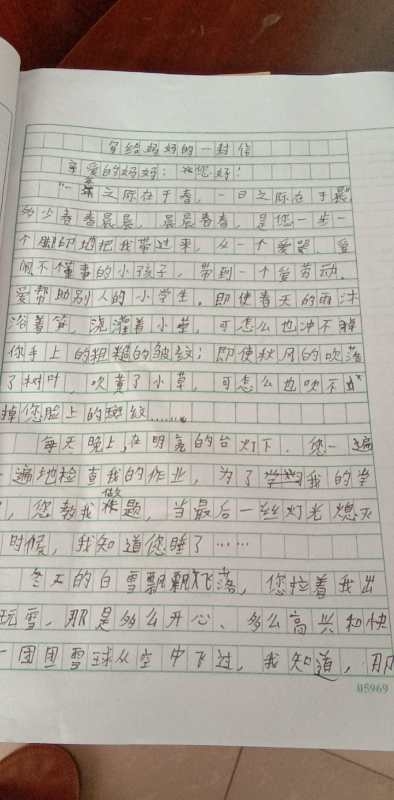 写给妈妈的一封信
亲爱的妈妈：您好！
"一年之际在于春，一日之际在于晨"
多少春春晨晨，晨晨春春，是您一步一
个脚印地把我带过来，从一个爱哭、爱
闹不懂事的小孩子，带到一个爱劳动、
爱帮助别人的小学生。即使春天的雨沐
浴着笋，浇灌着小草，可怎么也冲不掉
你手上的粗糙的皱纹；即使秋风的吹落
了树叶，吹黄了小草，可怎么也吹不
掉您脸上的斑纹……
每天晚上，在明亮的台灯下，您一遍
一遍地检查我的作业，为了我的学
，您教我做题，当最后一丝灯光熄灭
时候，我知道您睡了……
冬天的白雪飘飘飞落，您拉着我出
玩雪，那是多么开心、多么高兴和快
一团团雪球从空中飞过，我知道，那
115969